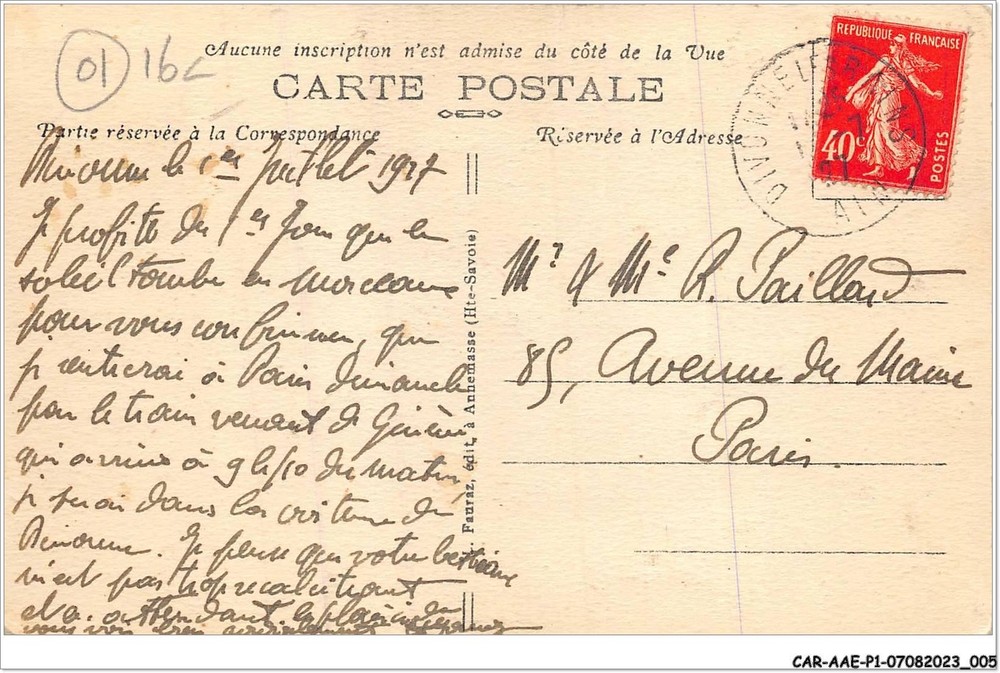 01 16
Aucune inscription n'est admise du côté de la Vue
CARTE POSTALE
Partie réservée à la Correspondance
Réservée à l'Adresse
REPUBLIQUE FRANÇAISE
40c
POSTES
DIVONNE LES BAINS
AIN
Divonne le 1er Juillet 1927
Je profite du 1er Jour que le
soleil tombe en morceaux
pour vous confirmer, que
je rentrerai à Paris dimanche
par le train venant de Genève
qui arrive à 9 h 10 du matin,
je serai dans la voiture de
Divonne. Je pense que votre
n'est pas trop récalcitrant
et a. attendant le plaisir de
vous voir bien
Mr & Me R. Paillard
85, Avenue du Maine
Paris.
Fauraz, édit. à Annemasse (Hte-Savoie)
CAR-AAE-P1-07082023_005